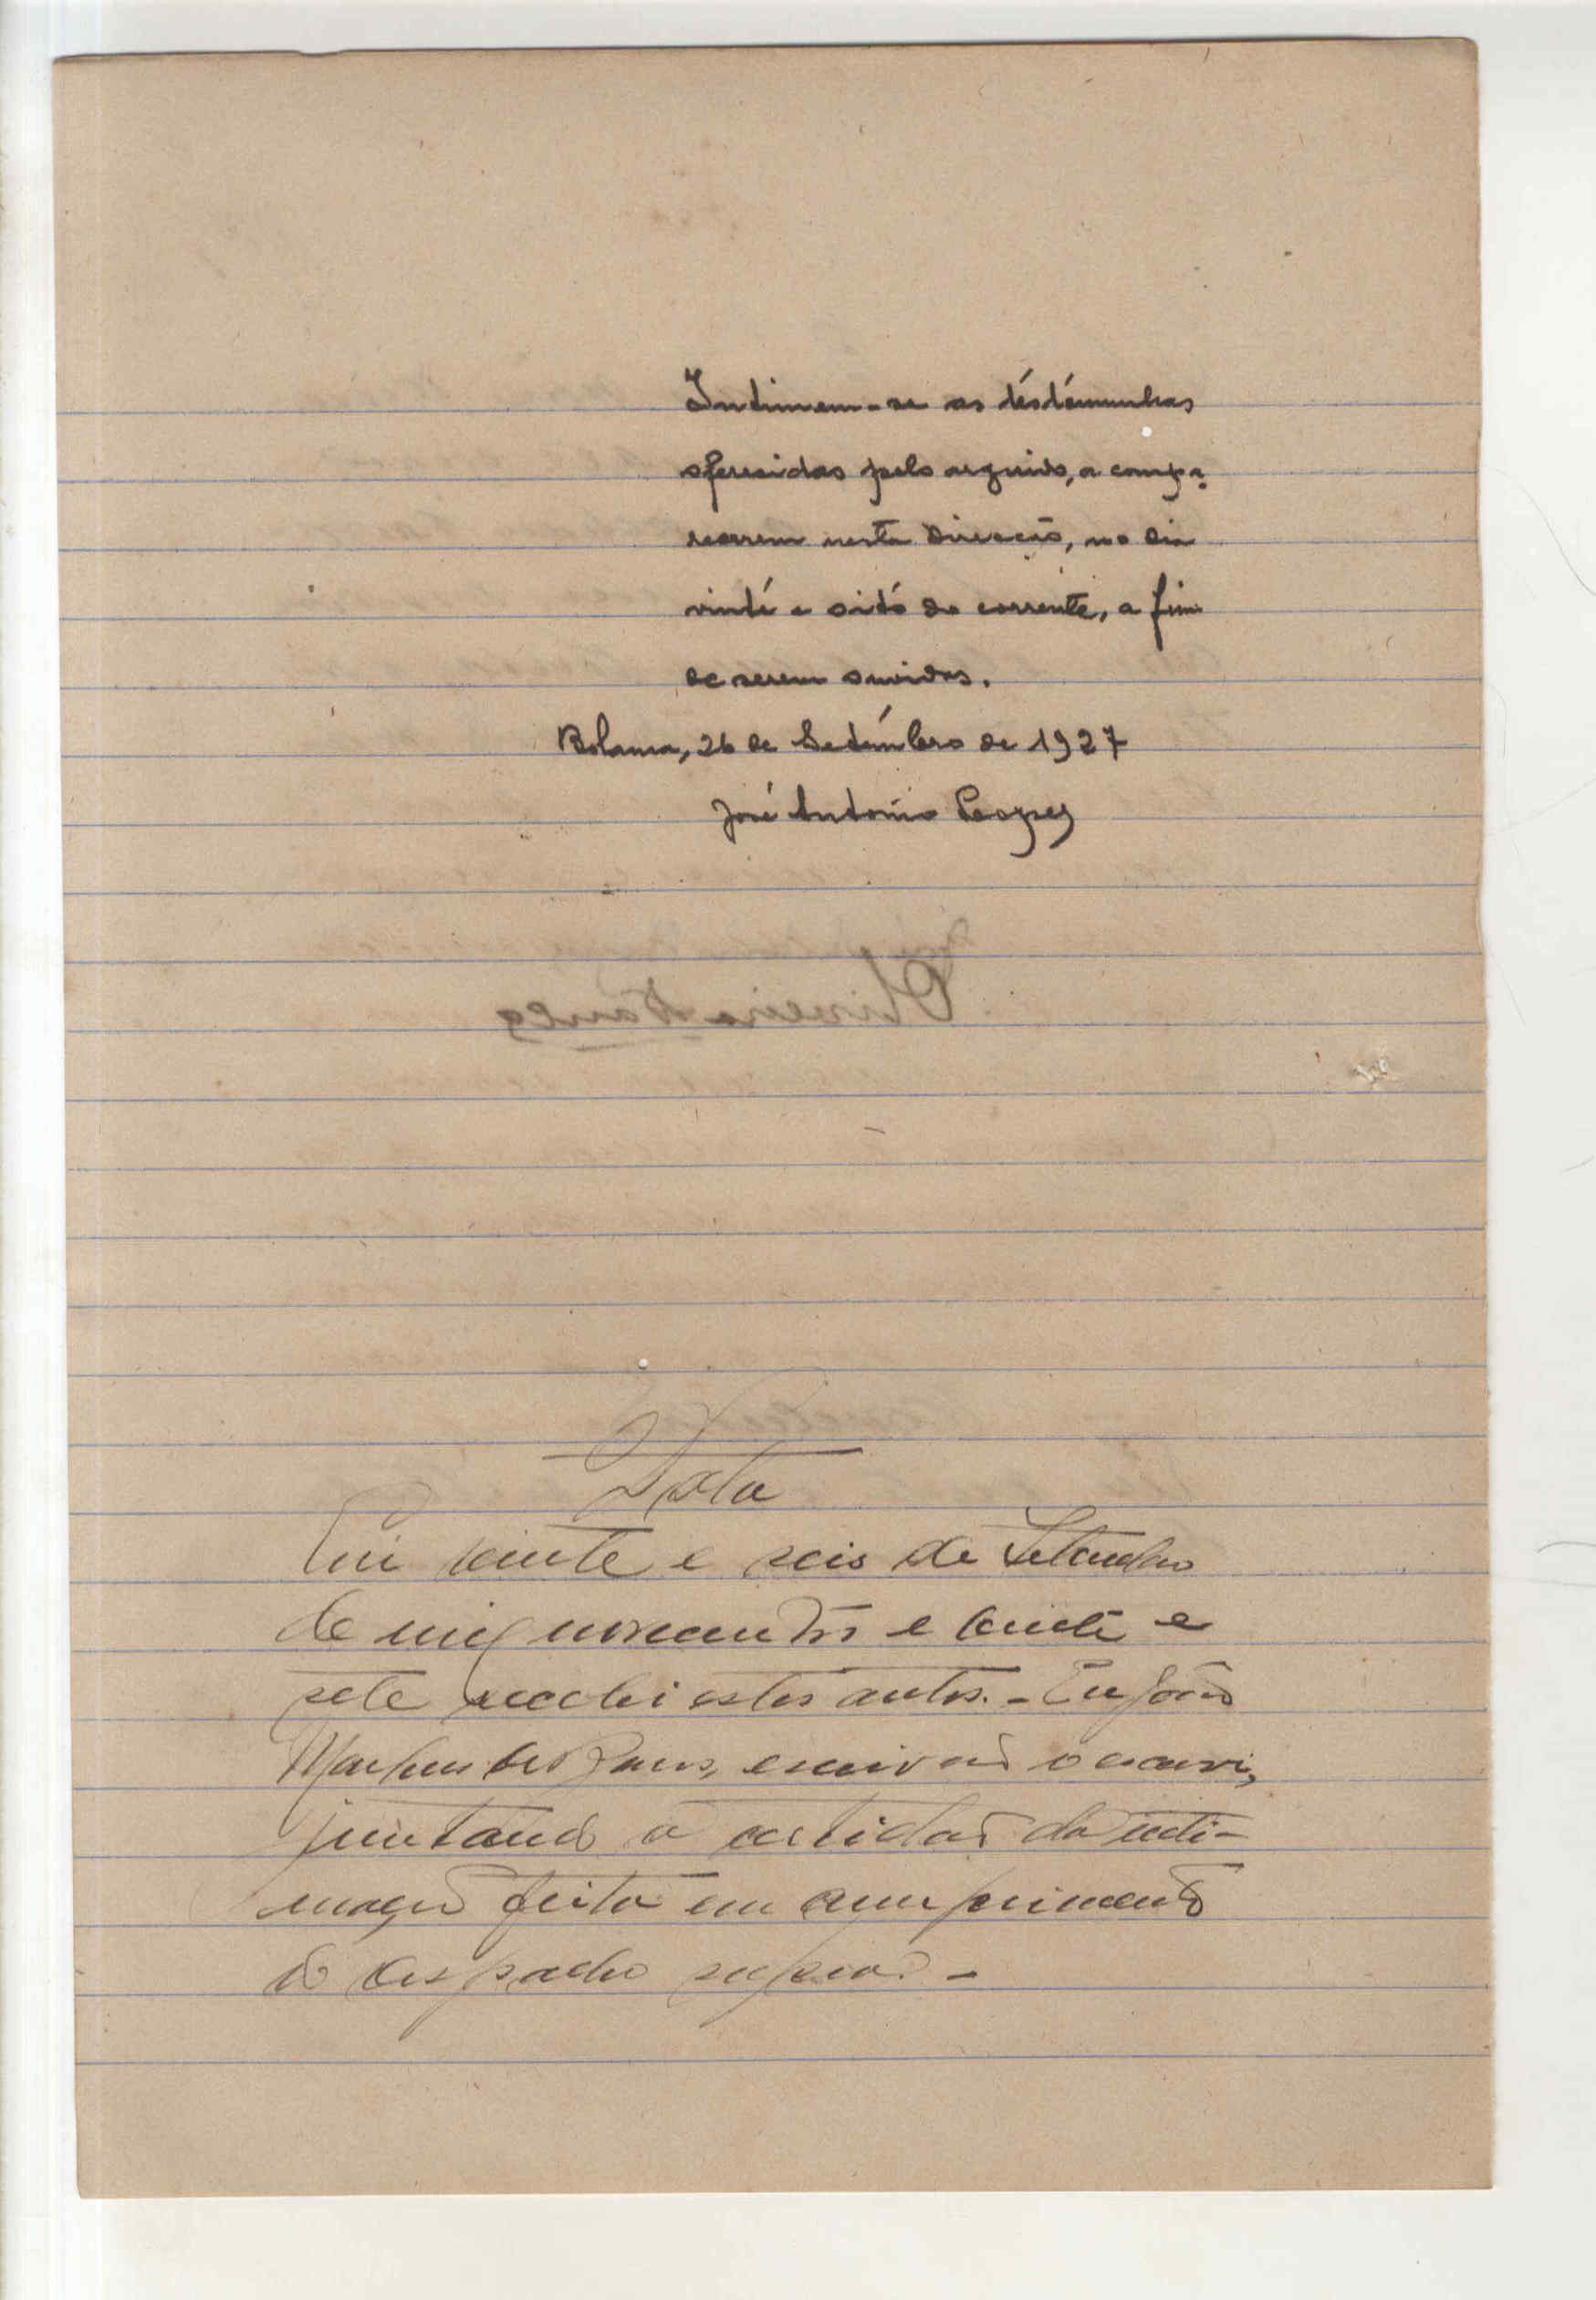 Intimem-se as téstémunhas
oferecidas pelo arguido, a compa-
recerem nesta Direcção, no dia
vinté e oitó do corrente, a fim
de serem ouvidas.
Bolama, 26 de Setémbro de 1927
José António Lopes
Data
Em vinte e seis de Setembro
de mil novecentos e vinte e
sete recebi estes autos. - Eu João
escrivão o escrevi,
juntando a certidão da inti-
mação feita em cumprimento
do despacho supra -